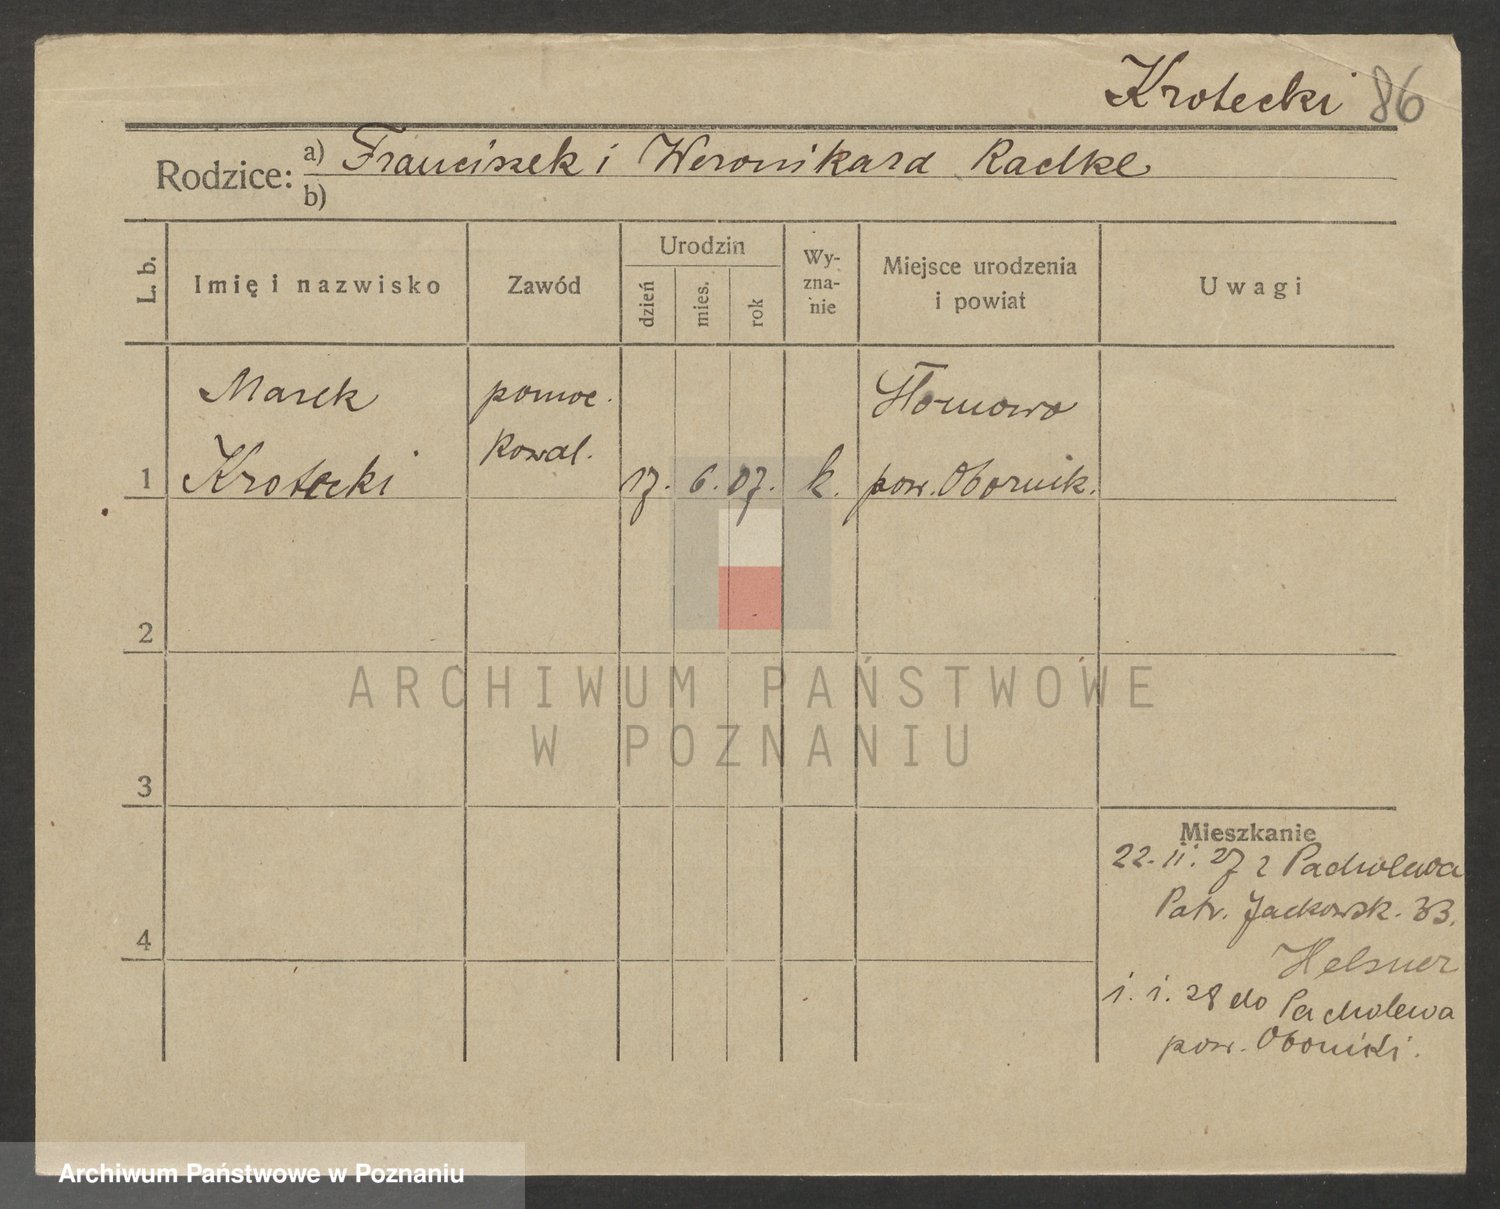 Krotecki 86
Rodzice: a) Franciszek i Weronika rd Radke
b)
L. b. Imię i nazwisko Zawód Urodzin dzień mies. rok Wy-zna-nie Miejsce urodzenia i powiat Uwagi
Marek pomoc. Słomowo
kowal.
1 Krotecki 17. 6. 07. k. pow. Obornik.
2
ARCHIWUM PAŃSTWOWE
W POZNANIU
3
Mieszkanie
22. 11. 27 z Pacholewa
Patr. Jackowsk. 33.
4
Helsner
1. 1. 28 do Pacholewa
pow. Oborniki.
Archiwum Państwowe w Poznaniu